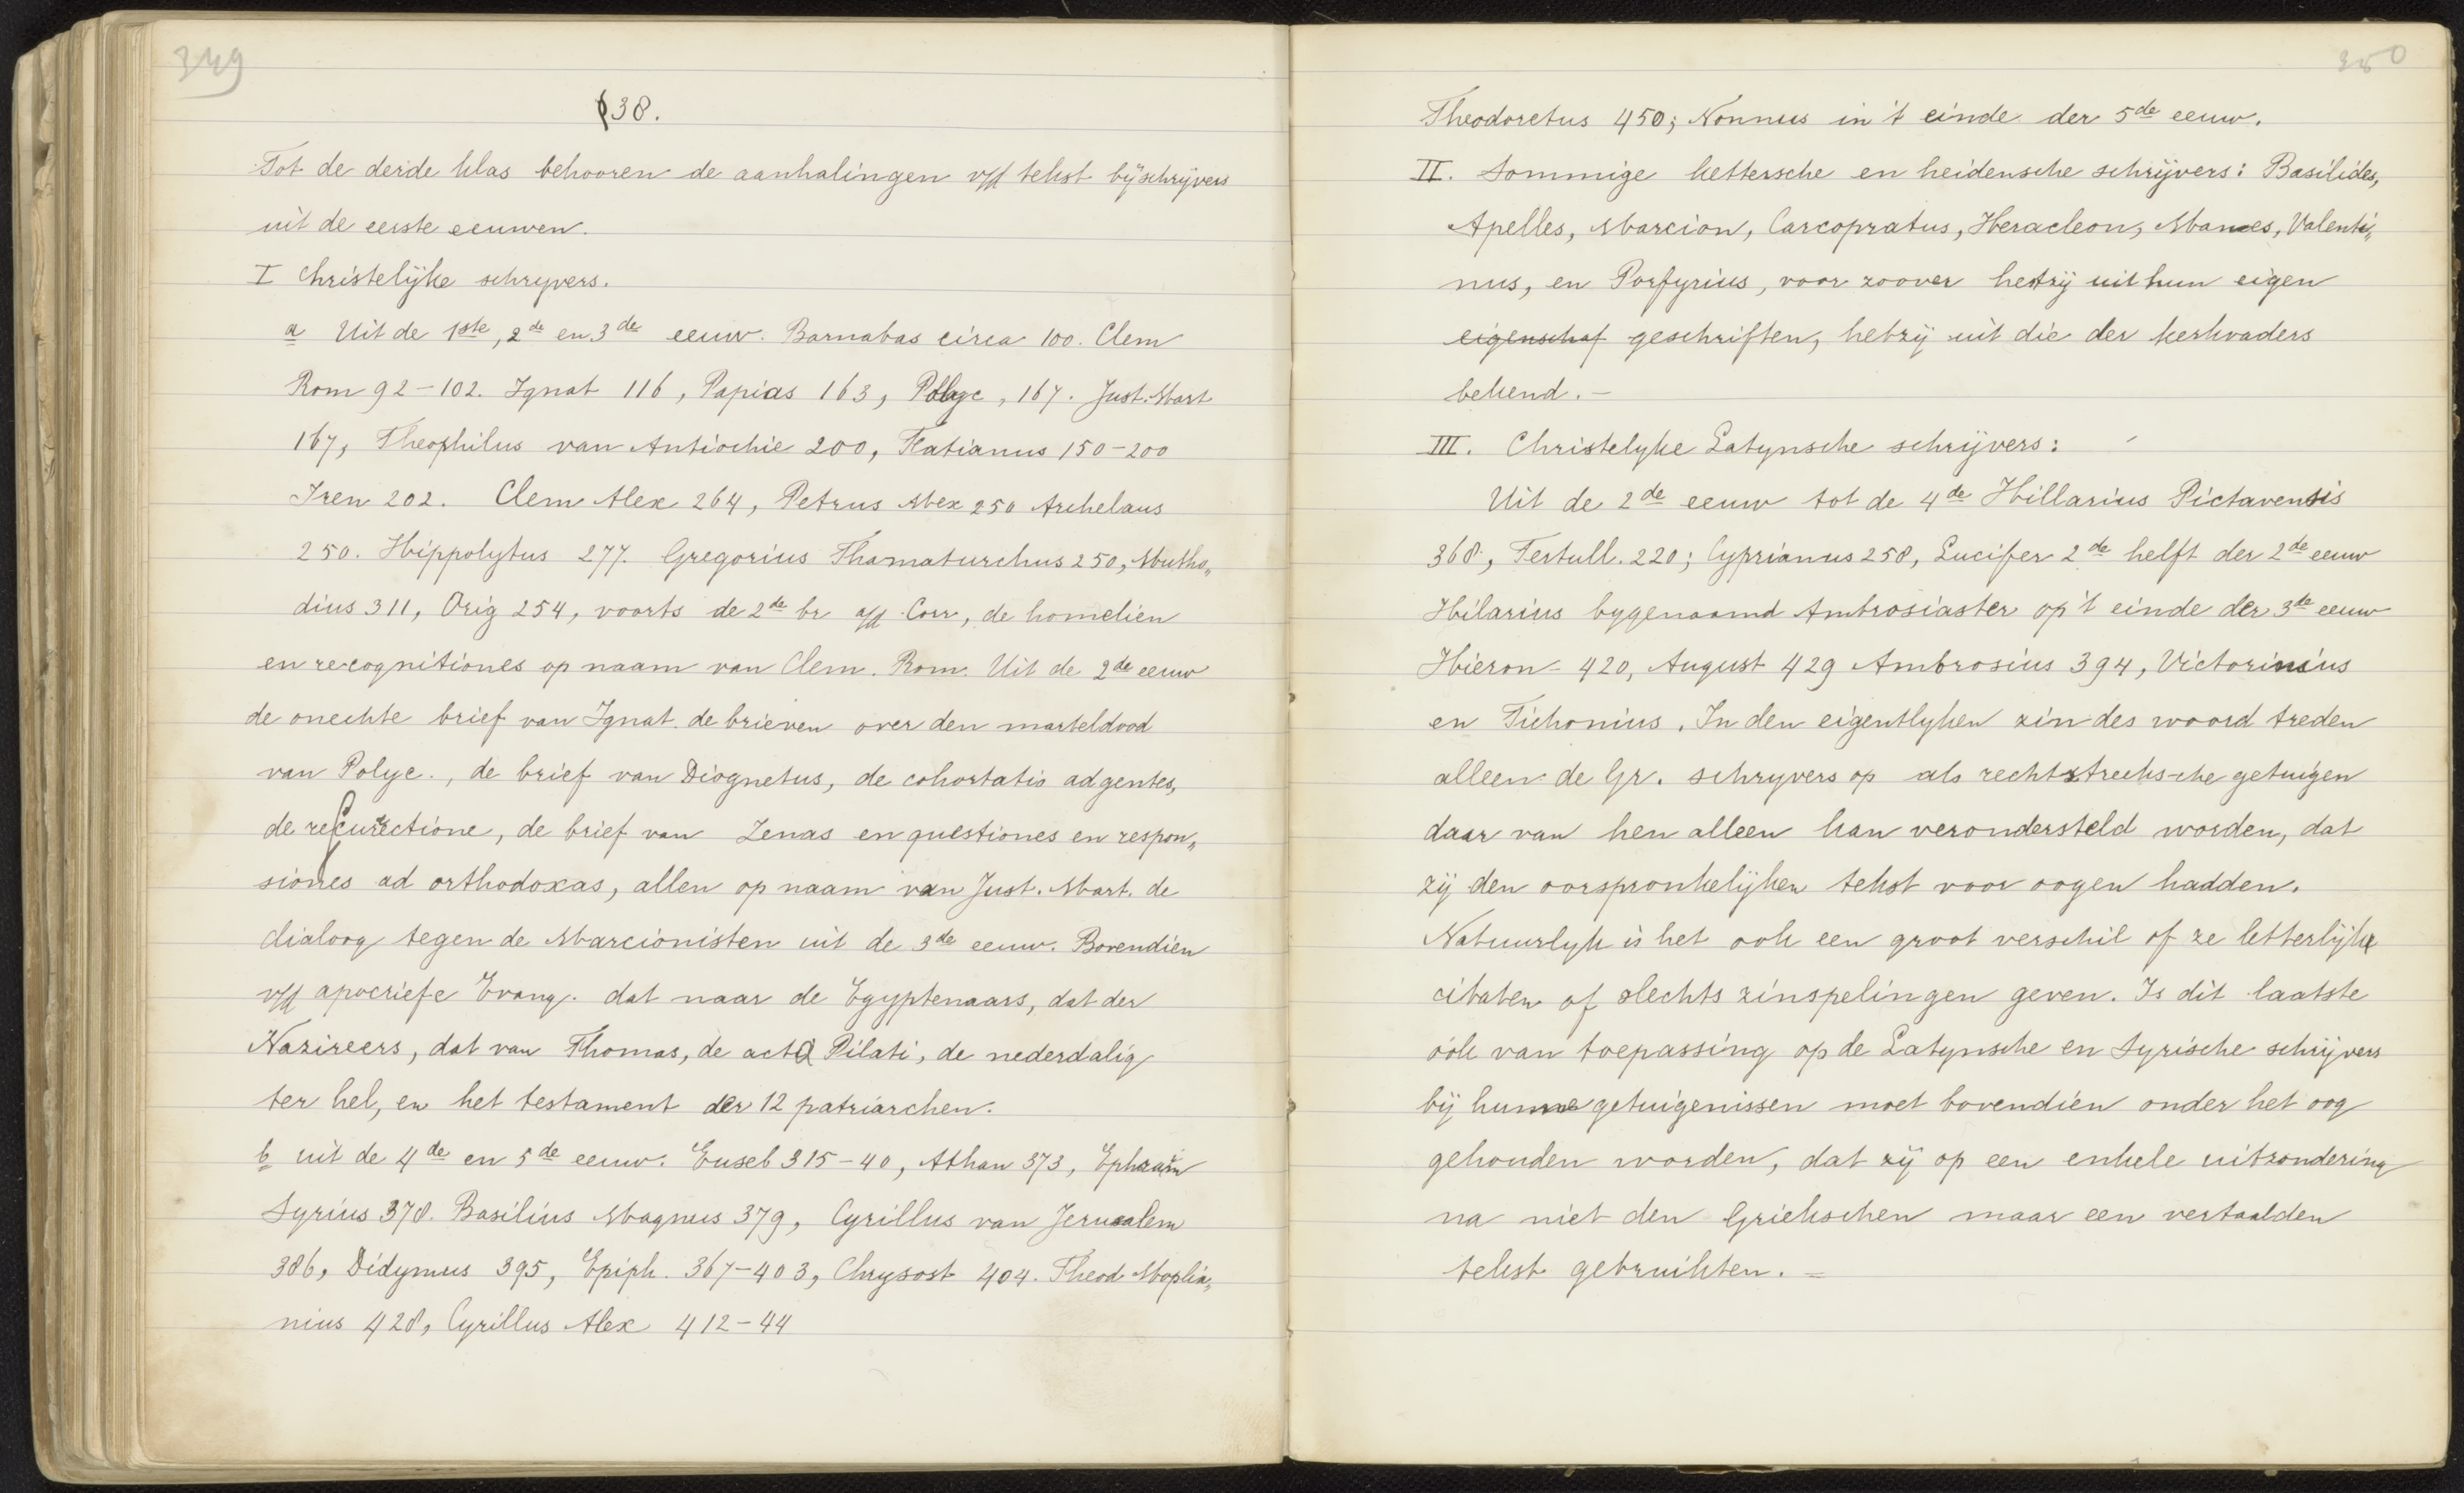 349
§38.
Tot de derde klas behooren de aanhalingen v/d tekst bij schrijvers
uit de eerste eeuwen.
I Christelijke schryvers.
a Uit de 1ste, 2de en 3de eeuw. Barnabas circa 100. Clem
Rom 92-102. Ignat 116, Papias 163, Polyc, 167. Just. Mart
167, Theophilus van Antiochie 200, Tatianus 150-200
Iren 202. Clem Alex 264, Petrus Alex 250 Archelaus
250. Hippolytus 277. Gregorius Thamaturchus 250, Mutho„
dius 311, Orig 254, voorts de 2de br a/d Corr, de homelien
en recognitiones op naam van Clem. Rom. Uit de 2de eeuw
de onechte brief van Ignat. de brieven over den marteldood
van Polyc., de brief van Diognetus, de cohortatio ad gentes,
de resurectione, de brief van Zenas en questiones en respon„
siones ad orthodoxas, allen op naam van Just. Mart. de
dialoog tegen de Marcionisten uit de 3de eeuw. Bovendien
v/d apocriefe Evang. dat naar de Egyptenaars, dat der
Nazireers, dat van Thomas, de acta Pilati, de nederdalig
ter hel, en het testament der 12 patriarchen.
b uit de 4de en 5de eeuw. Euseb 315-40, Athan 373, Ephraim
Syrius 378. Basilius Magnus 379, Cyrillus van Jerusalem
386, Didymus 395, Epiph. 367-403, Chrysost 404. Theod Mopli„
nius 428, Cyrillus Alex 412-44
350
Theodoretus 450; Nonnus in 't einde der 5de eeuw.
II. Sommige kettersche en heidensche schrijvers: Basilides,
Apelles, Marcion, Carcopratus, Heracleon, Manes, Valenti„
nus, en Porfyrius, voor zoover hetzij uit hun eigen
eigenschaf geschriften, hetzij uit die der kerkvaders
bekend. -
III. Christelyke Latynsche schrijvers:
Uit de 2de eeuw tot de 4de Hillarius Pictavensis
368, Tertull. 220; Cyprianus 258, Lucifer 2de helft der 2de eeuw
Hilarius bygenaamd Ambrosiaster op 't einde der 3de eeuw
Hieron - 420, August 429 Ambrosius 394, Victorinsius
en Tichonius. In den eigentlyken zin des woord treden
alleen de Gr. schryvers op als rechtstreeksche getuigen
daar van hen alleen kan verondersteld worden, dat
zij den oorspronkelijken tekst voor oogen hadden.
Natuurlyk is het ook een groot verschil of ze letterlijke
citaten of slechts zinspelingen geven. Is dit laatste
óók van toepassing op de Latynsche en Syrische schrijvers
bij hunne getuigenissen moet bovendien onder het oog
gehouden worden, dat zij op een enkele uitzondering
na niet den Griekschen maar een vertaalden
tekst gebruikten. =